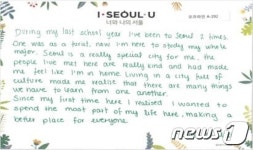 I·SEOUL·U
너와 나의 서울
During my last school year I've been to Seoul 2 times.
One was as a turist, now I'm here to study my whole
major. Seoul is a really special city for me, the
people I've met here are really kind and had made
me feel like I'm in home. Living in a city full of
culture made me realize that there are many things
we have to learn from one another.
Since my first time here I realised I wanted to
spend the most part of my life here, making a
better place for everyone.
뉴스1